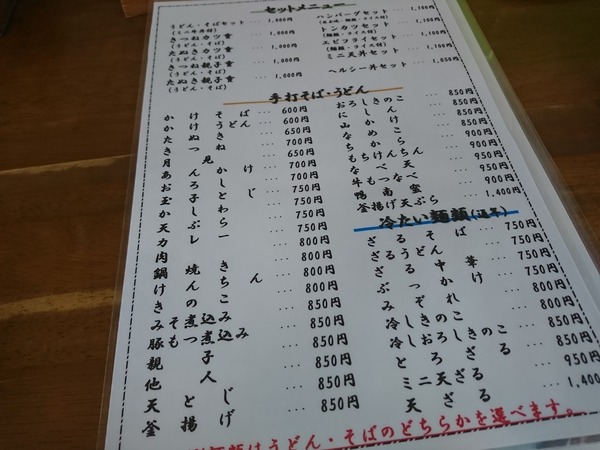 セットメニュー
うどん・そばセット … 1,000円
(ミニ牛丼付)
きつねカツ重 … 1,000円
(うどん・そば)
たぬきカツ重 … 1,000円
(うどん・そば)
きつね親子重 … 1,000円
(うどん・そば)
たぬき親子重 … 1,000円
(うどん・そば)
ハンバーグセット … 1,100円
トンカツセット … 1,100円
(麺類・ライス付)
エビフライセット … 1,100円
(麺類・ライス付)
ミニ天丼セット … 1,100円
ヘルシー丼セット … 1,050円
手打そば・うどん
かけそば … 600円
かけうどん … 600円
たぬき … 650円
きつね … 700円
月見 … 650円
あんかけ … 700円
おろし … 700円
玉子とじ … 750円
かしわ … 750円
天ぷら … 750円
カレー … 750円
肉 … 800円
鍋焼き … 800円
けんちん … 800円
きのこ … 800円
みそ煮込み … 850円
豚もつ煮込み … 850円
親子 … 850円
他人 … 850円
天とじ … 850円
釜揚げ … 850円
おろしきのこ … 850円
にしん … 850円
山かけ … 850円
なめこ … 900円
ちから … 900円
もちけんちん … 900円
なべ天 … 950円
牛もつなべ … 950円
鴨南蛮 … 900円
釜揚げ天ぷら … 1,400円
冷たい麺類
ざるそば … 750円
ざるうどん … 750円
ざる中華 … 750円
ぶっかけ … 800円
みぞれ … 800円
冷しきのこ … 800円
冷しおろしきのこ … 850円
とろざる … 850円
ミニ天ざる … 950円
天ざる … 1,400
麺類はうどん・そばのどちらかを選べます。